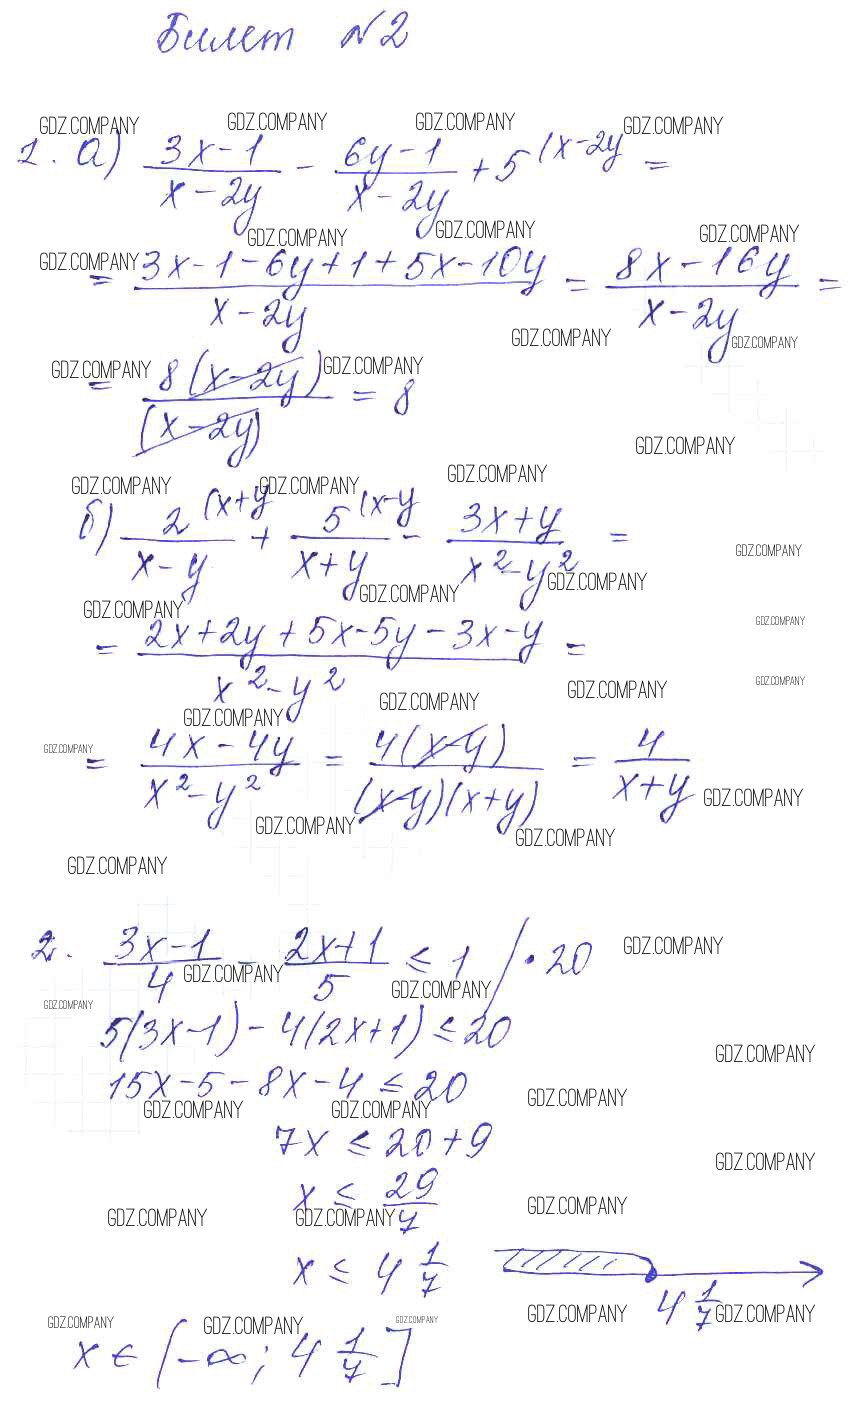 Билет №2
GDZ.COMPANY GDZ.COMPANY GDZ.COMPANY GDZ.COMPANY
1. а) (3x-1)/(x-2y) - (6y-1)/(x-2y) + 5^(x-2y =
GDZ.COMPANY GDZ.COMPANY GDZ.COMPANY GDZ.COMPANY
= (3x-1-6y+1+5x-10y)/(x-2y) = (8x-16y)/(x-2y) =
GDZ.COMPANY GDZ.COMPANY
GDZ.COMPANY GDZ.COMPANY
= 8(x-2y)/(x-2y) = 8
GDZ.COMPANY
GDZ.COMPANY GDZ.COMPANY GDZ.COMPANY
б) 2/(x-y) (x+y + 5/(x+y) (x-y - (3x+y)/(x²-y²) =
GDZ.COMPANY
GDZ.COMPANY GDZ.COMPANY GDZ.COMPANY GDZ.COMPANY
= (2x+2y+5x-5y-3x-y)/(x²-y²) =
GDZ.COMPANY GDZ.COMPANY GDZ.COMPANY GDZ.COMPANY
= (4x-4y)/(x²-y²) = 4(x-y)/((x-y)(x+y)) = 4/(x+y)
GDZ.COMPANY GDZ.COMPANY
GDZ.COMPANY GDZ.COMPANY
GDZ.COMPANY
2. (3x-1)/4 - (2x+1)/5 ≤ 1 / ·20
GDZ.COMPANY GDZ.COMPANY GDZ.COMPANY
GDZ.COMPANY
5(3x-1) - 4(2x+1) ≤ 20
GDZ.COMPANY
15x-5-8x-4 ≤ 20
GDZ.COMPANY GDZ.COMPANY GDZ.COMPANY
7x ≤ 20+9
GDZ.COMPANY
x ≤ 29/7
GDZ.COMPANY GDZ.COMPANY GDZ.COMPANY
x ≤ 4 1/7
4 1/7
GDZ.COMPANY GDZ.COMPANY
GDZ.COMPANY GDZ.COMPANY GDZ.COMPANY
x ∈ (-∞; 4 1/7]